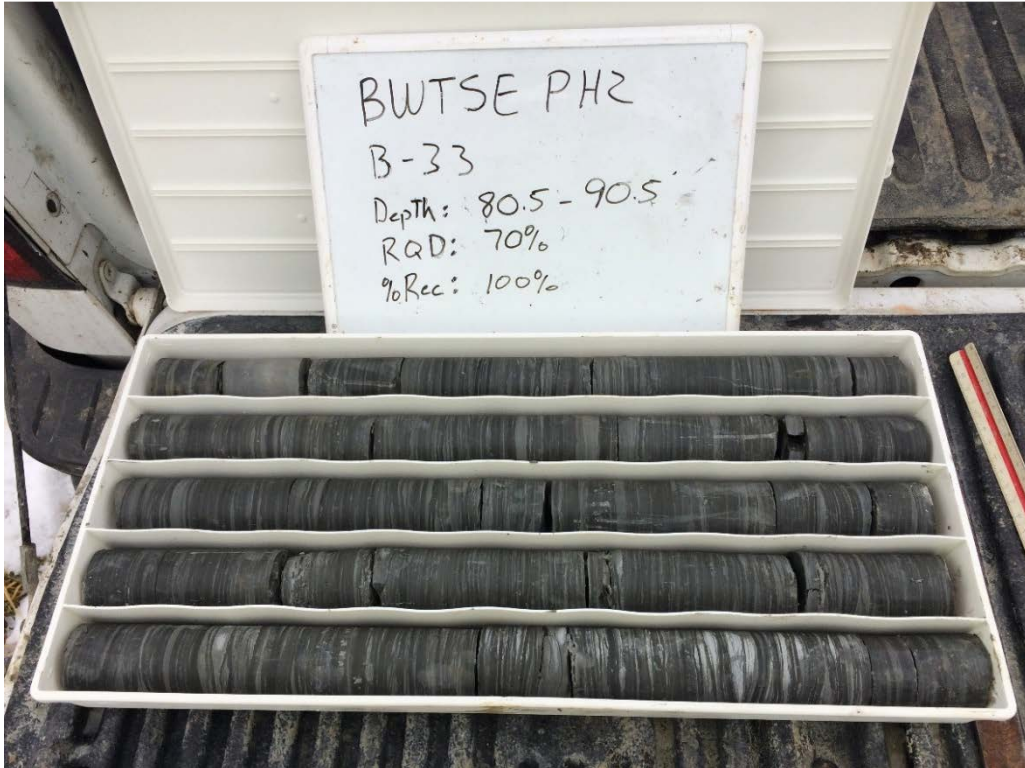 BWTSE PH2
B-33
Depth: 80.5 - 90.5'
RQD: 70%
%Rec: 100%